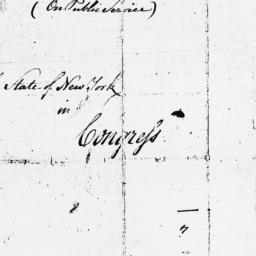 (On Public Service)
State of New York
in
Congreſs